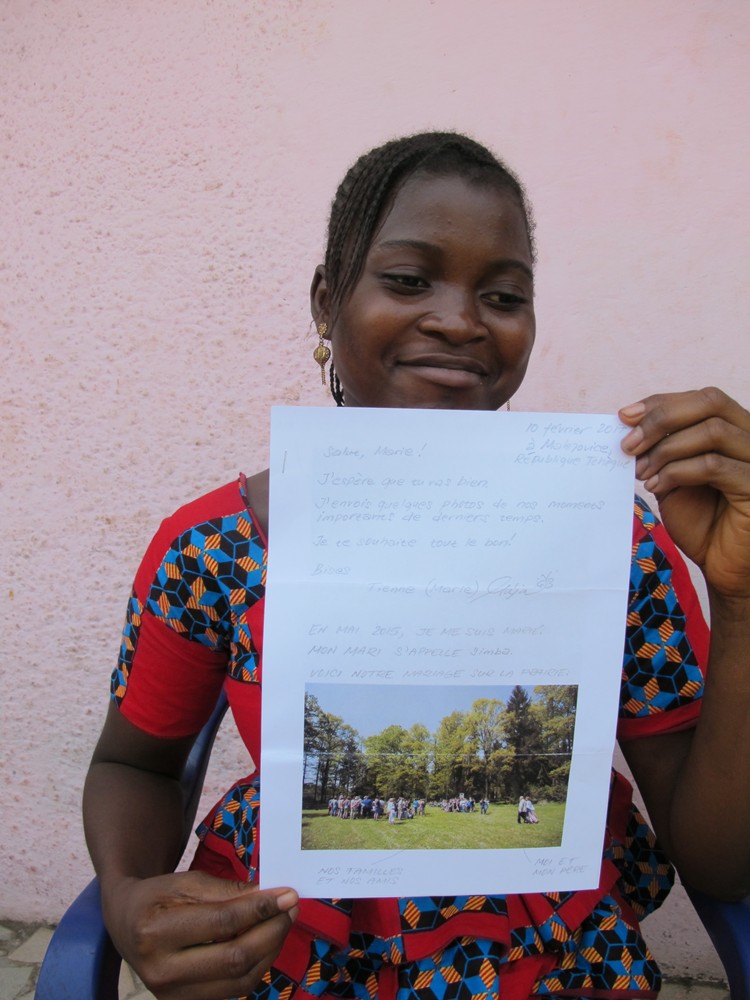 10 février 2017
à
République Tchèque
Salue, Marie!
J'espère que tu vas bien.
J'envoie quelques photos de nos moments
importantes de derniers temps.
Je te souhaite tout le bon!
Bisous
(Marie)
EN MAI 2015, JE ME SUIS MARIÉ.
MON MARI S'APPELLE
VOICI NOTRE MARIAGE SUR LA PRAIRIE.
NOS FAMILLES
ET NOS AMIS
MOI ET
MON PÈRE